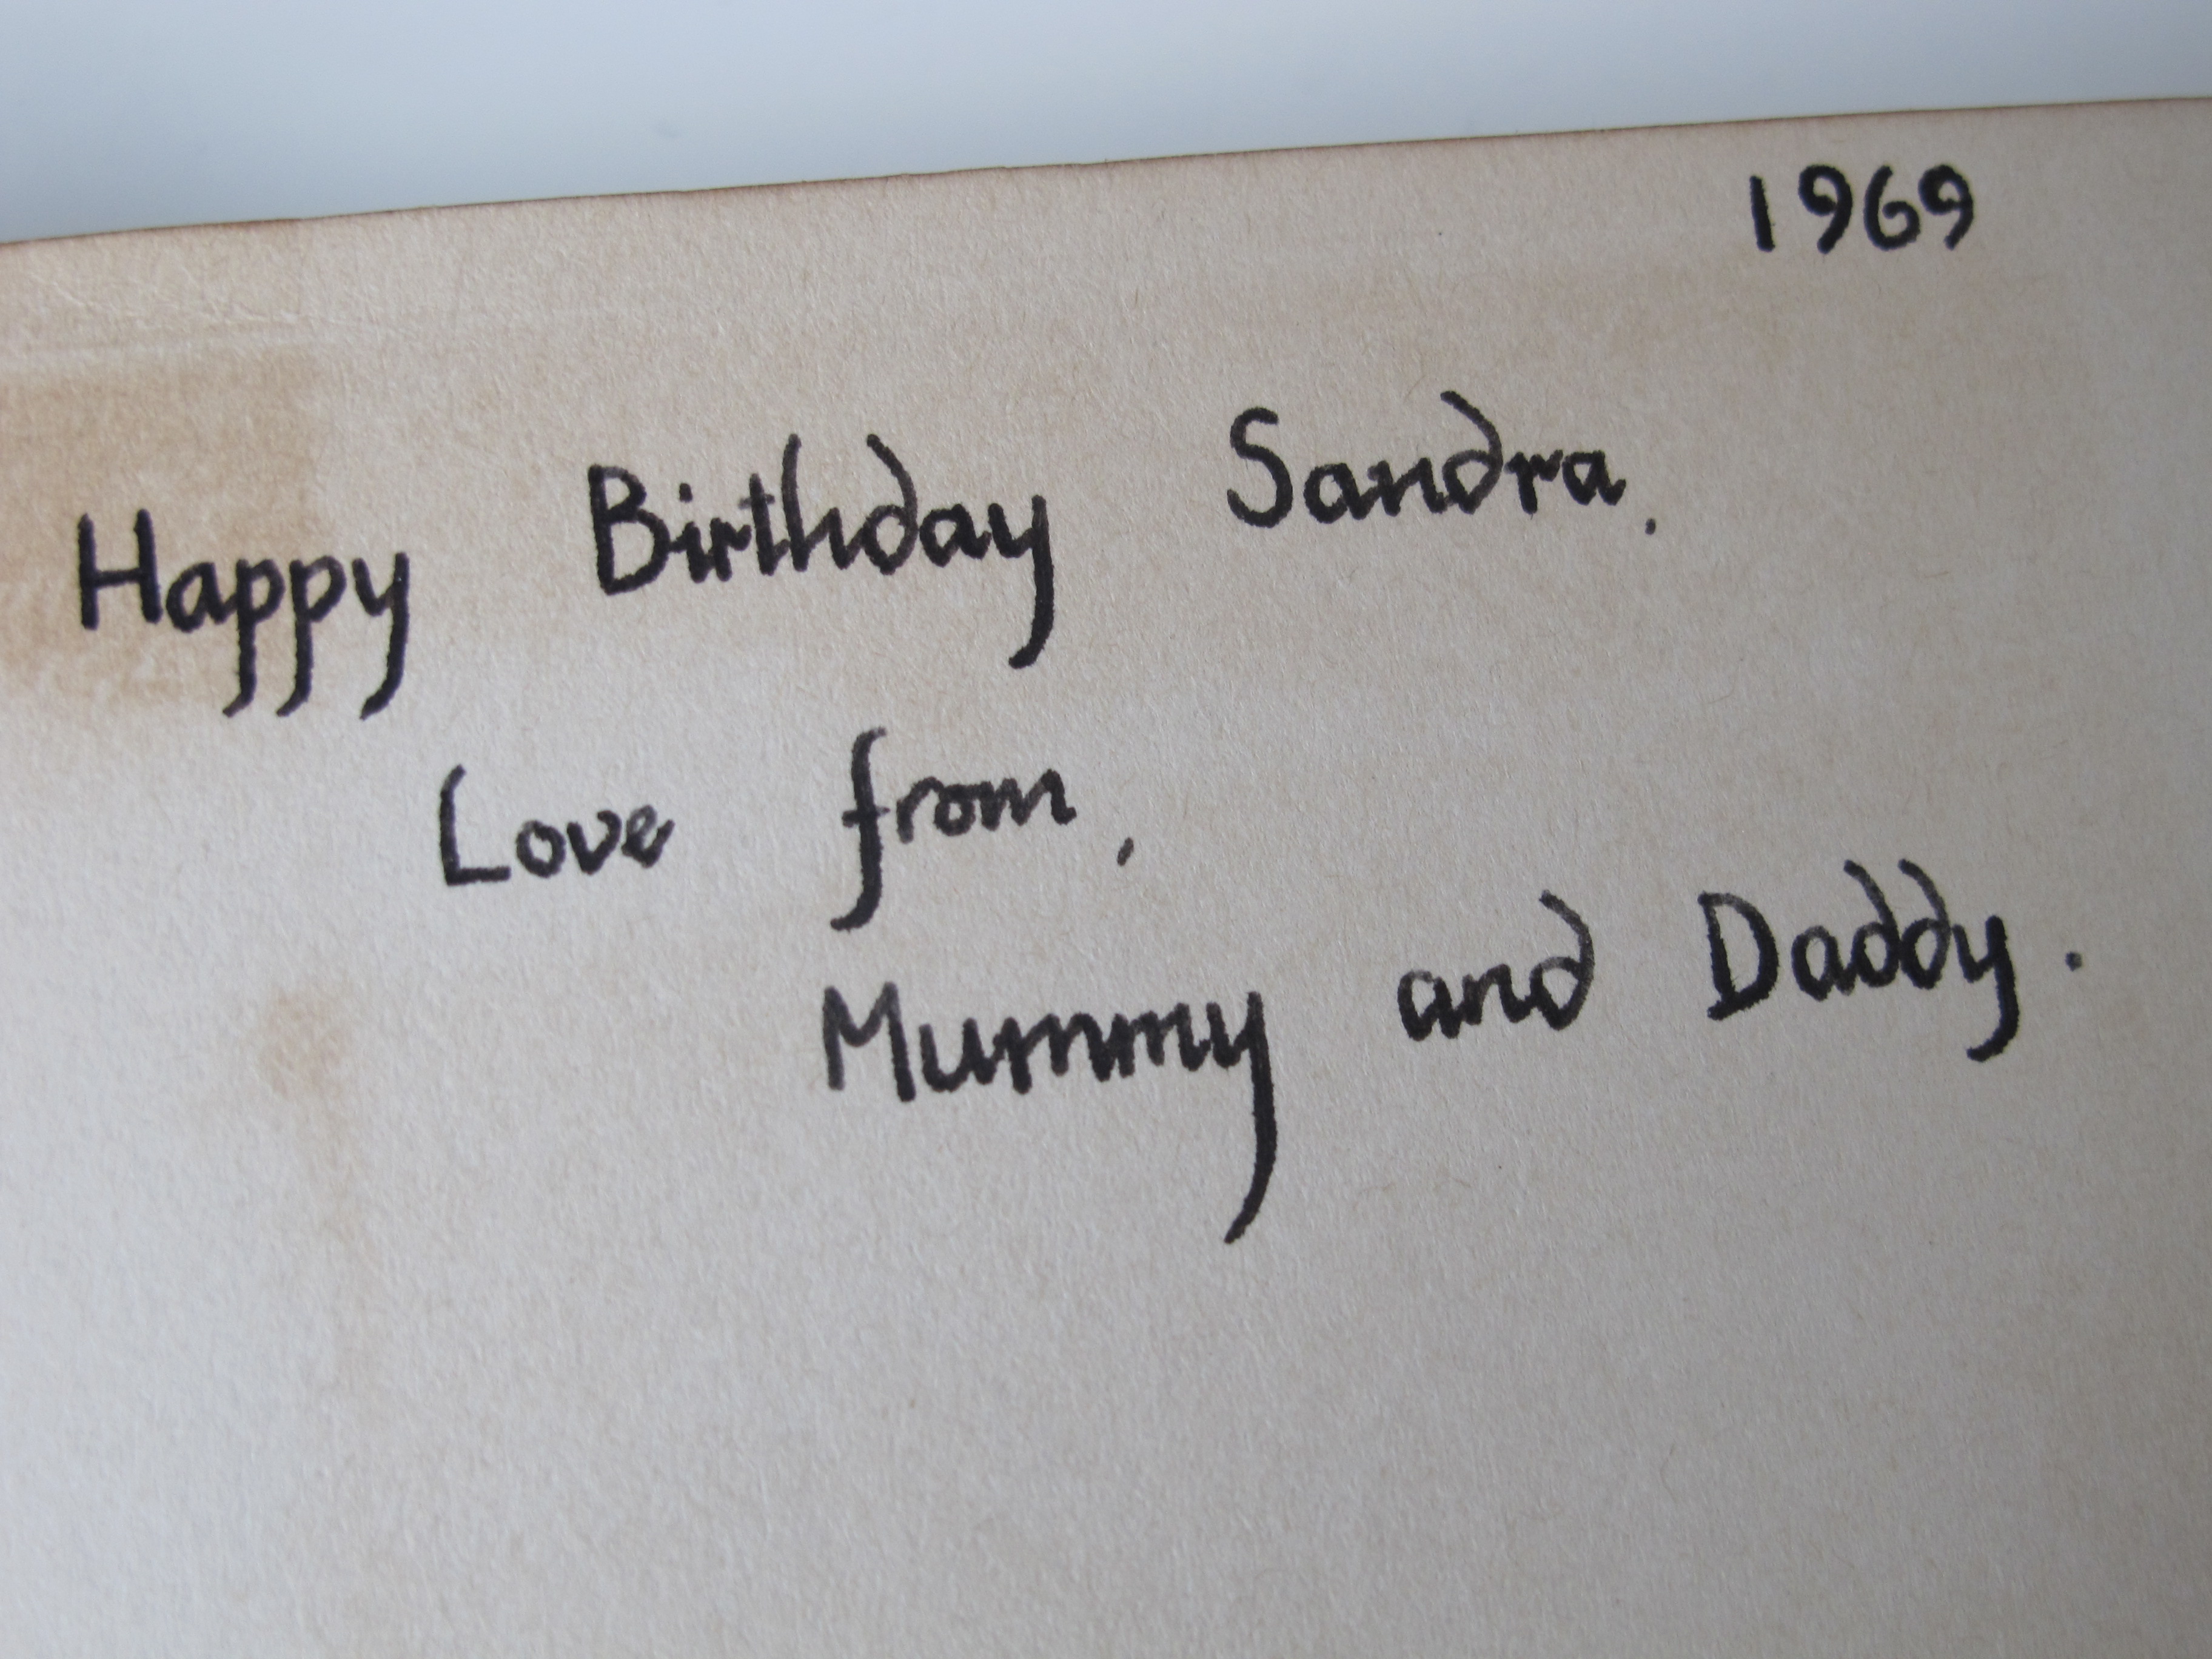 1969
Happy Birthday Sandra.
Love from,
Mummy and Daddy.